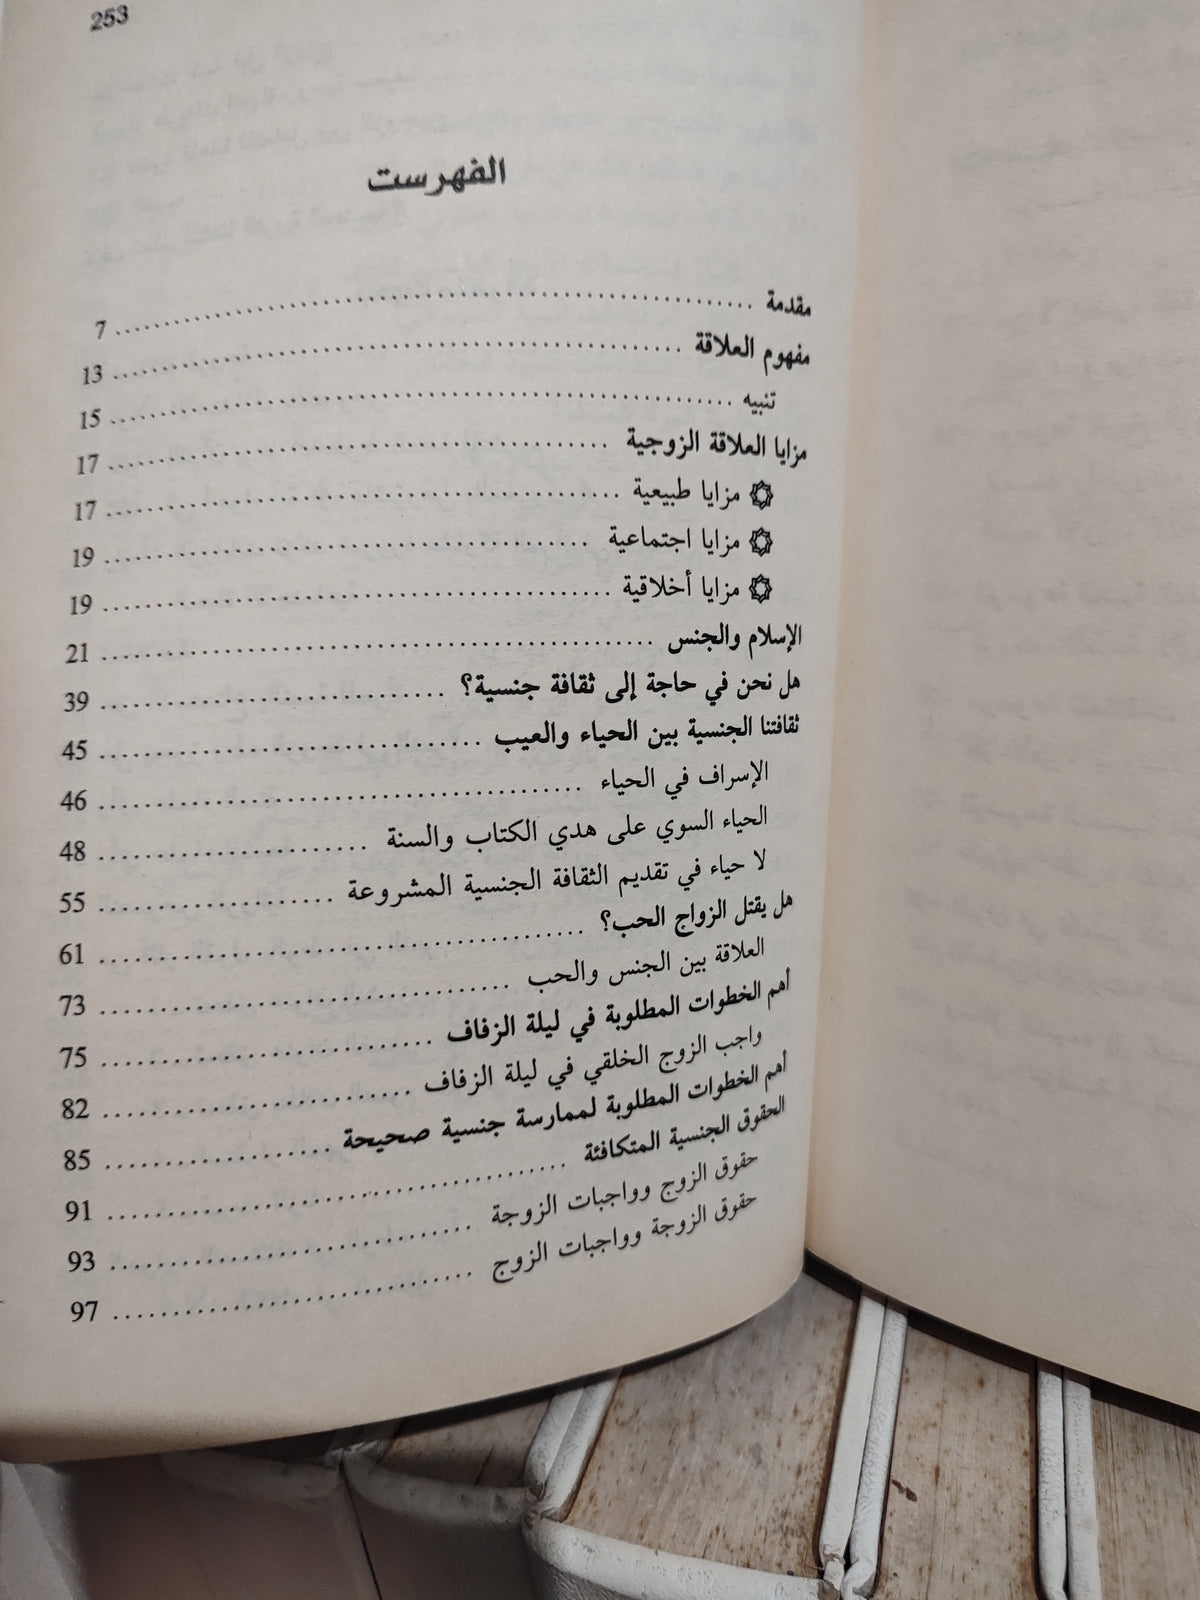 253
الفهرست
مقدمة ........ 7
مفهوم العلاقة ........ 13
تنبيه ........ 15
مزايا العلاقة الزوجية ........ 17
مزايا طبيعية ........ 17
مزايا اجتماعية ........ 19
مزايا أخلاقية ........ 19
الإسلام والجنس ........ 21
هل نحن في حاجة إلى ثقافة جنسية؟ ........ 39
ثقافتنا الجنسية بين الحياء والعيب ........ 45
الإسراف في الحياء ........ 46
الحياء السوي على هدي الكتاب والسنة ........ 48
لا حياء في تقديم الثقافة الجنسية المشروعة ........ 55
هل يقتل الزواج الحب؟ ........ 61
العلاقة بين الجنس والحب ........ 73
أهم الخطوات المطلوبة في ليلة الزفاف ........ 75
واجب الزوج الخلقي في ليلة الزفاف ........ 82
أهم الخطوات المطلوبة لممارسة جنسية صحيحة ........ 85
الحقوق الجنسية المتكافئة ........ 91
حقوق الزوج وواجبات الزوجة ........ 93
حقوق الزوجة وواجبات الزوج ........ 97